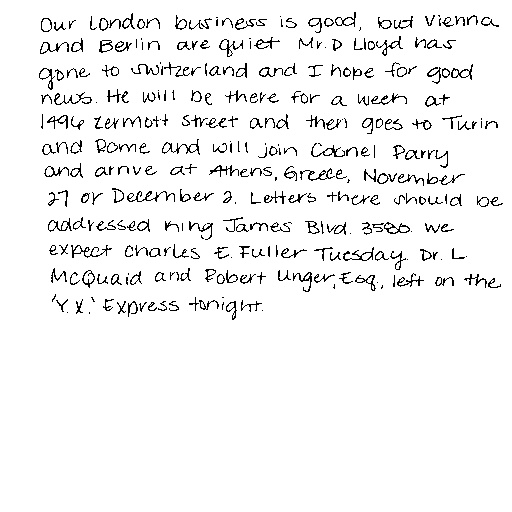 Our London business is good, but Vienna
and Berlin are quiet Mr. D Lloyd has
gone to Switzerland and I hope for good
news. He will be there for a week at
1496 Zermott Street and then goes to Turin
and Rome and will join Colonel Parry
and arrive at Athens, Greece, November
27 or December 2. Letters there should be
addressed King James Blvd. 3580. We
expect Charles E. Fuller Tuesday. Dr. L
McQuaid and Robert Unger, Esq., left on the
'Y.X.' Express tonight.